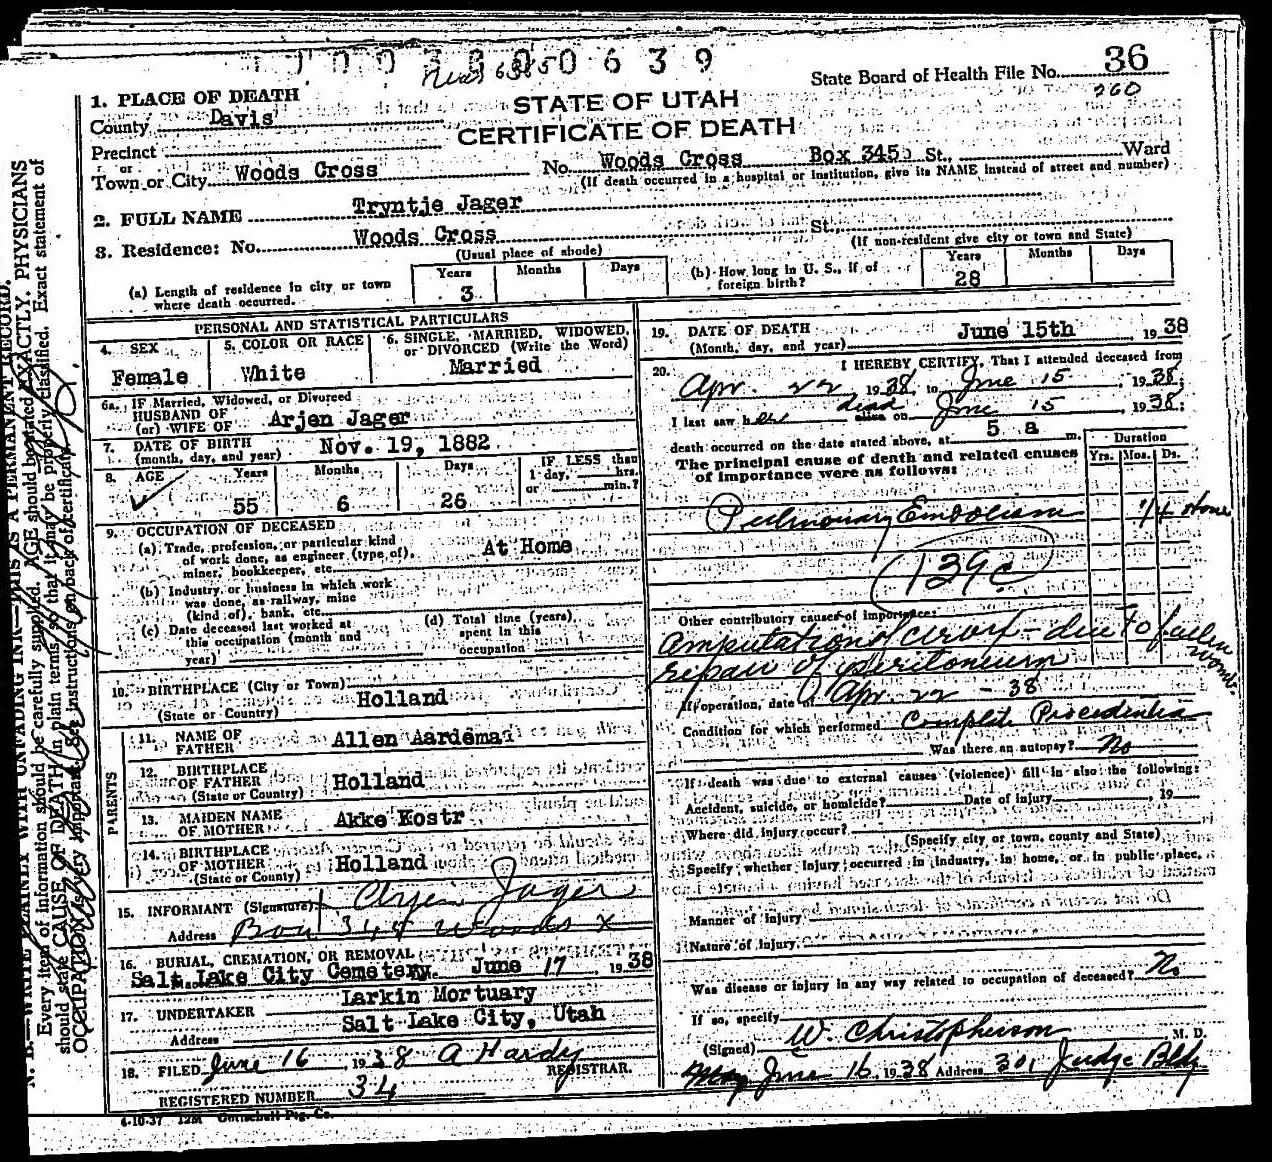 1003300639
State Board of Health File No. 36
260
STATE OF UTAH
CERTIFICATE OF DEATH
1. PLACE OF DEATH
County Davis
Precinct
or
Town or City Woods Cross No. Woods Cross Box 345 St., Ward
(If death occurred in a hospital or institution, give its NAME instead of street and number)
2. FULL NAME Tryntje Jager
3. Residence: No. Woods Cross St.,
(Usual place of abode) (If non-resident give city or town and State)
(a) Length of residence in city or town where death occurred. Years 3 Months Days
(b) How long in U. S., if of foreign birth? Years 28 Months Days
PERSONAL AND STATISTICAL PARTICULARS
4. SEX Female
5. COLOR OR RACE White
6. SINGLE, MARRIED, WIDOWED, or DIVORCED (Write the Word) Married
6a. IF Married, Widowed, or Divorced
HUSBAND OF
(or) WIFE OF Arjen Jager
7. DATE OF BIRTH
(month, day, and year) Nov. 19, 1882
8. AGE Years 55 Months 6 Days 26 IF LESS than 1 day, hrs. or min.?
9. OCCUPATION OF DECEASED
(a) Trade, profession, or particular kind
of work done, as engineer (type of),
miner, bookkeeper, etc. At Home
(b) Industry or business in which work
was done, as railway, mine
(kind of), bank, etc.
(c) Date deceased last worked at
this occupation (month and
year)
(d) Total time (years)
spent in this
occupation
10. BIRTHPLACE (City or Town)
(State or Country) Holland
PARENTS
11. NAME OF FATHER Allen Aardema
12. BIRTHPLACE OF FATHER (State or Country) Holland
13. MAIDEN NAME OF MOTHER Akke Kostr
14. BIRTHPLACE OF MOTHER (State or Country) Holland
15. INFORMANT (Signature) Arjen Jager
Address Box 345 Woods X
16. BURIAL, CREMATION, OR REMOVAL
Salt Lake City Cemetery. June 17, 1938
17. UNDERTAKER Larkin Mortuary
Address Salt Lake City, Utah
18. FILED June 16 1938 A Hardy REGISTRAR.
REGISTERED NUMBER 34
4-10-37 12M Gottschall Ptg. Co.
19. DATE OF DEATH
(Month, day, and year) June 15th, 1938
20. I HEREBY CERTIFY, That I attended deceased from
Apr. 22, 1938, to June 15, 1938;
I last saw her dead alive on June 15, 1938;
death occurred on the date stated above, at 5 a m.
The principal cause of death and related causes
of importance were as follows:
Duration
Yrs. Mos. Ds.
Pulmonary Embolism 1/4 Hour
139c
Other contributory causes of importance:
Amputation of cervix - due to fallen womb.
repair of peritoneum
If operation, date of Apr. 22 - 38
Condition for which performed Complete Procedentia
Was there an autopsy? No
If death was due to external causes (violence) fill in also the following:
Accident, suicide, or homicide? Date of injury, 19
Where did injury occur?
(Specify city or town, county and State)
Specify whether injury occurred in industry, in home, or in public place.
Manner of injury
Nature of injury
Was disease or injury in any way related to occupation of deceased? No
If so, specify
(Signed) W. Christopherson M. D.
May June 16, 1938 Address 301 Judge Bldg
N. B.—WRITE PLAINLY WITH UNFADING INK—THIS IS A PERMANENT RECORD.
Every item of information should be carefully supplied. AGE should be stated EXACTLY. PHYSICIANS
should state CAUSE OF DEATH in plain terms, so that it may be properly classified. Exact statement of
OCCUPATION is very important. See instructions on back of certificate.